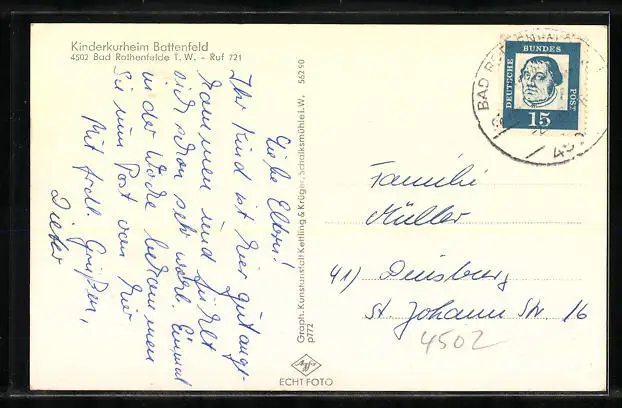 Kinderkurheim Battenfeld
4502 Bad Rothenfelde T.W. - Ruf 721
Liebe Eltern!
Ihr Kind ist hier gut ange-
kommen und fühlt
sich schon sehr wohl. Einmal
in der Woche bekommen
Sie nun Post von hier
Mit frdl. Grüßen,
Graph. Kunstanstalt Kettling & Krüger, Schalksmühle i.W. 562 90
p772
ECHT FOTO
DEUTSCHE BUNDES POST
15
BAD
Familie
Müller
41) Duisburg
St. Johann Str. 16
4502